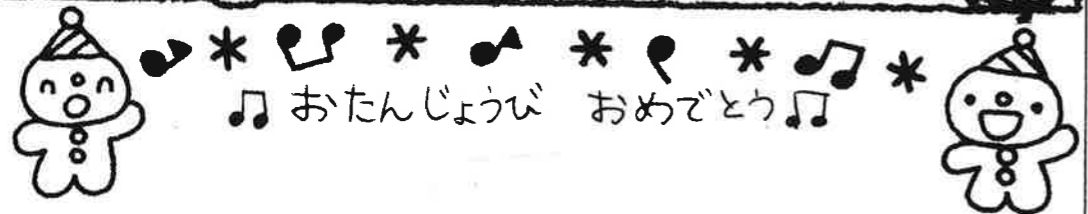 ♫ おたんじょうび おめでとう ♫